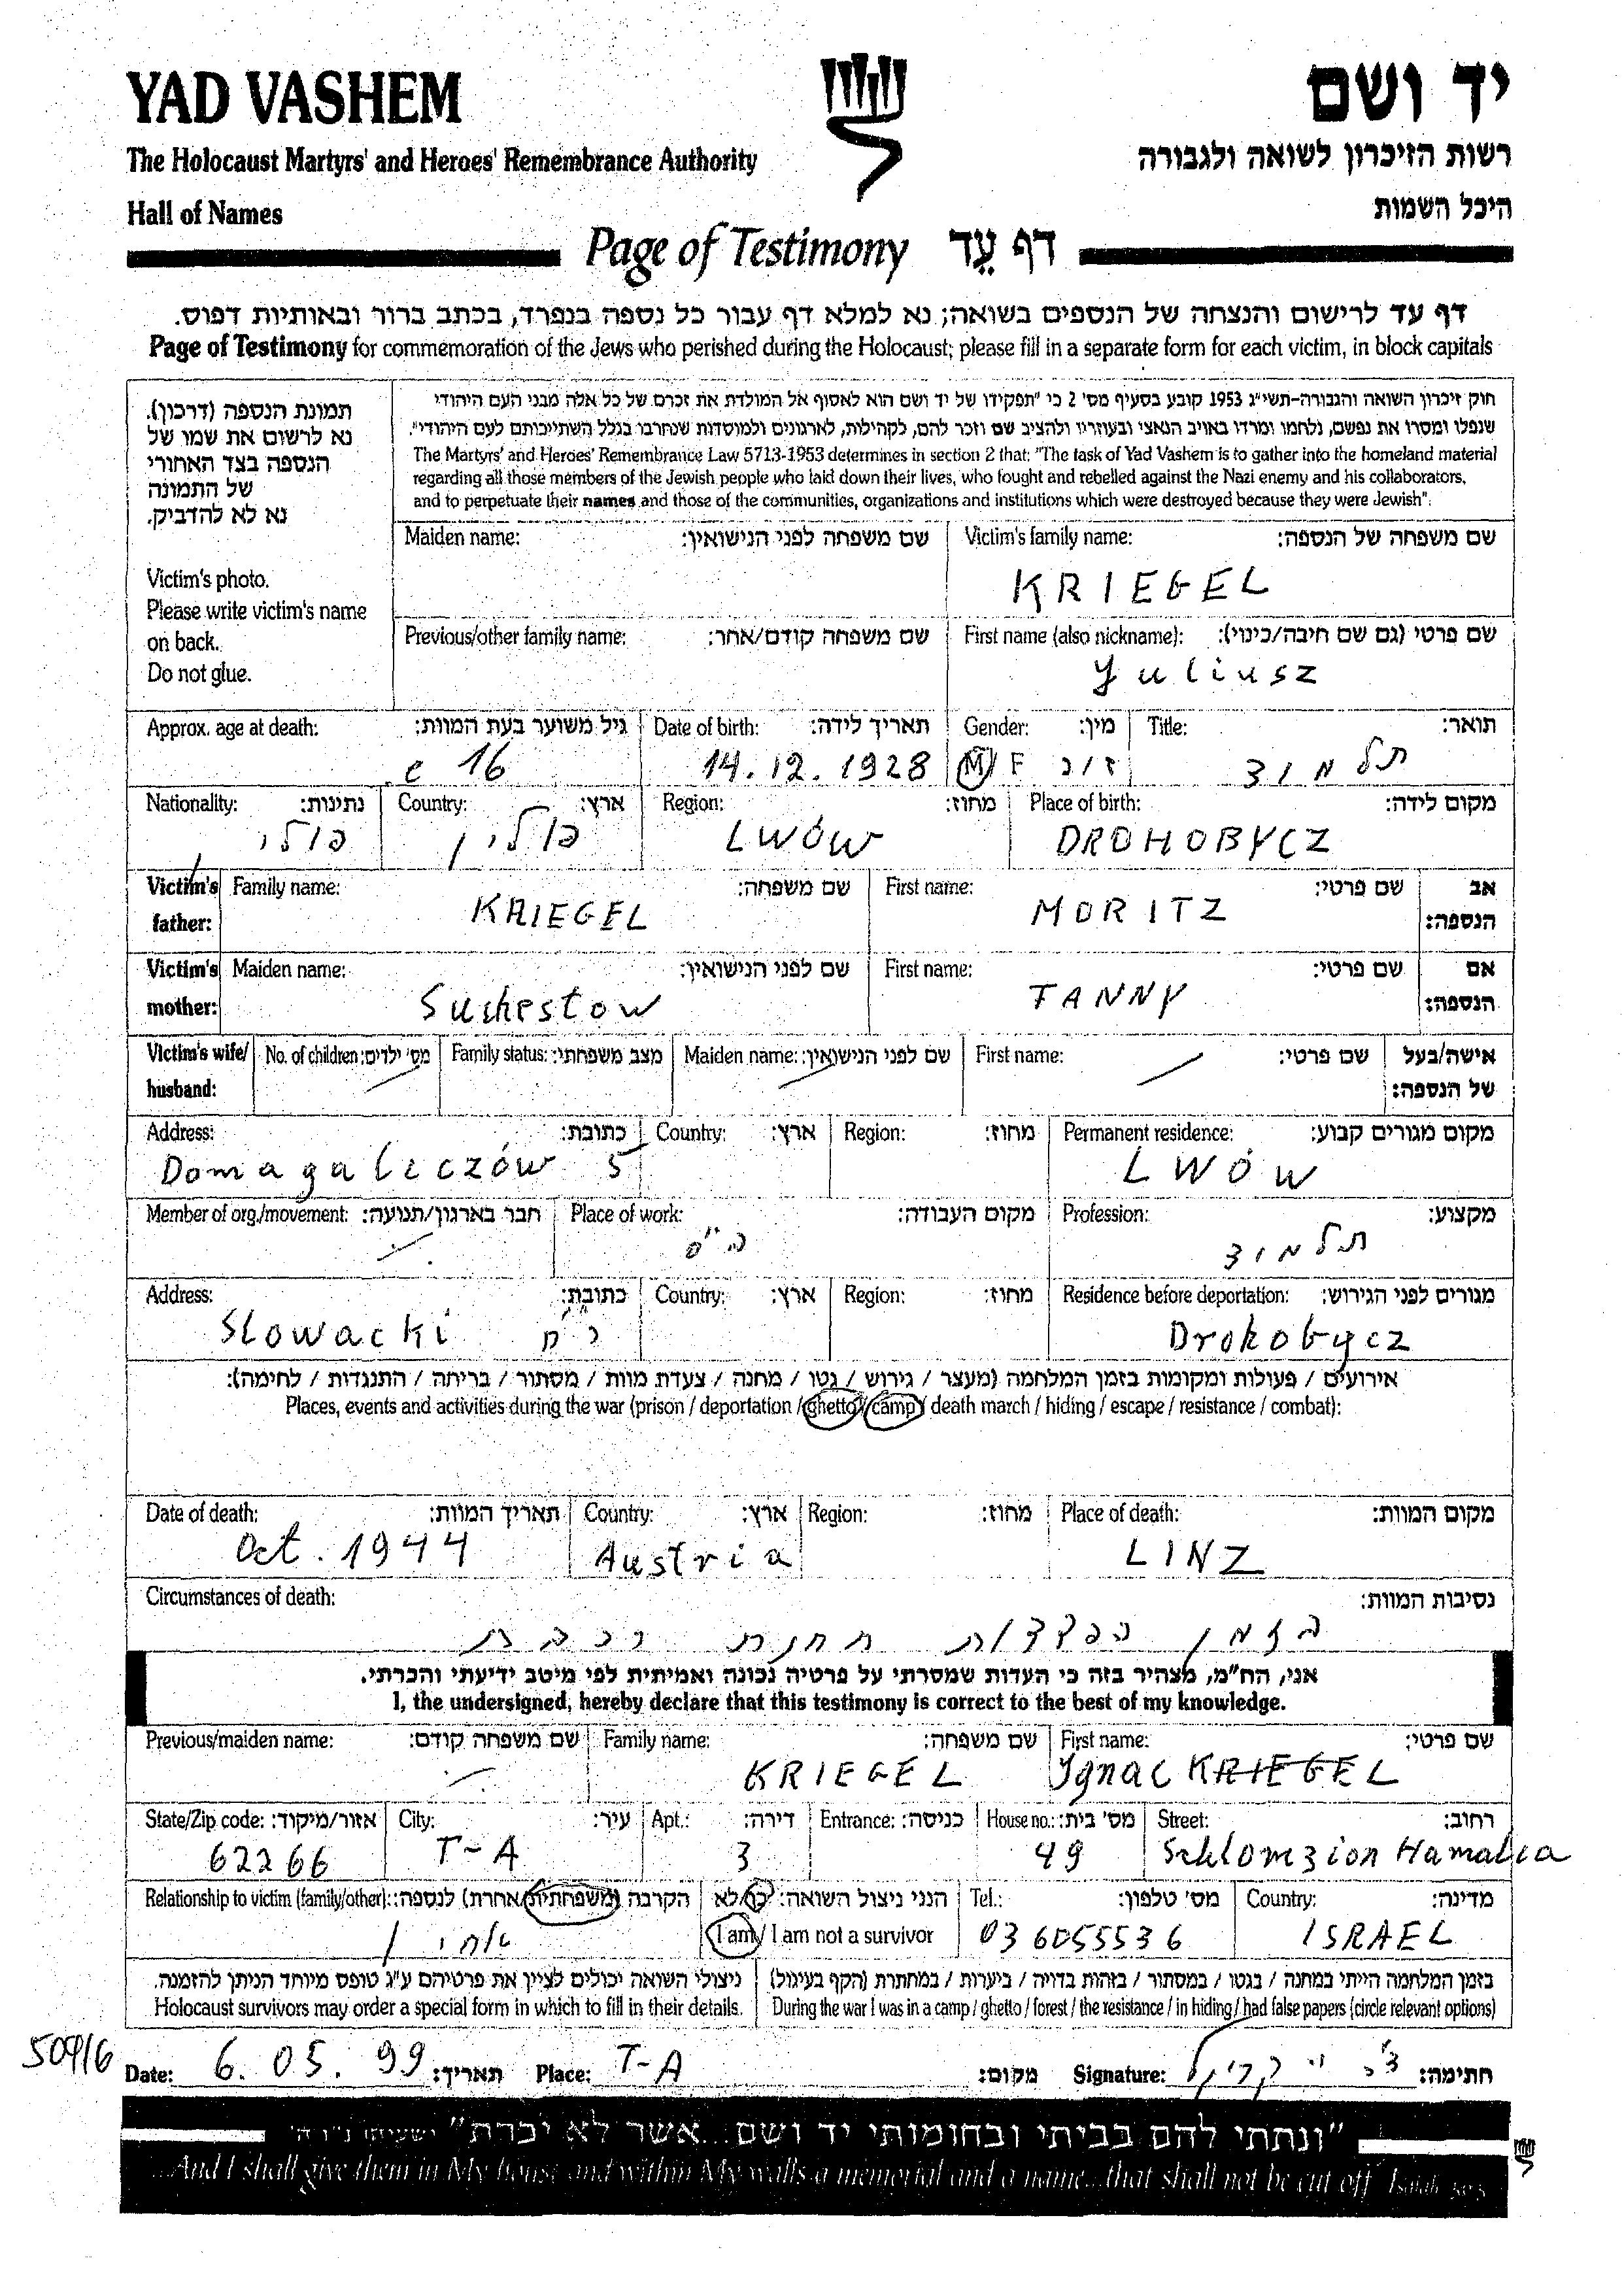 YAD VASHEM
יד ושם
The Holocaust Martyrs' and Heroes' Remembrance Authority
רשות הזיכרון לשואה ולגבורה
Hall of Names
היכל השמות
Page of Testimony דף עֵד
דף עד לרישום והנצחה של הנספים בשואה; נא למלא דף עבור כל נספה בנפרד, בכתב ברור ובאותיות דפוס.
Page of Testimony for commemoration of the Jews who perished during the Holocaust; please fill in a separate form for each victim, in block capitals
תמונת הנספה (דרכון).
נא לרשום את שמו של
הנספה בצד האחורי
של התמונה
נא לא להדביק.
Victim's photo.
Please write victim's name
on back.
Do not glue.
חוק זיכרון השואה והגבורה-תשי"ג 1953 קובע בסעיף מס' 2 כי "תפקידו של יד ושם הוא לאסוף אל המולדת את זכרם של כל אלה מבני העם היהודי
שנפלו ומסרו את נפשם, נלחמו ומרדו באויב הנאצי ובעוזריו ולהציב שם וזכר להם, לקהילות, לארגונים ולמוסדות שנחרבו בגלל השתייכותם לעם היהודי".
The Martyrs' and Heroes' Remembrance Law 5713-1953 determines in section 2 that: "The task of Yad Vashem is to gather into the homeland material
regarding all those members of the Jewish people who laid down their lives, who fought and rebelled against the Nazi enemy and his collaborators,
and to perpetuate their names and those of the communities, organizations and institutions which were destroyed because they were Jewish".
Maiden name: שם משפחה לפני הנישואין: Victim's family name: שם משפחה של הנספה:
KRIEGEL
Previous/other family name: שם משפחה קודם/אחר: First name (also nickname): שם פרטי (גם שם חיבה/כינוי):
Yuliusz
Approx. age at death: גיל משוער בעת המוות: Date of birth: תאריך לידה: Gender: מין: Title: תואר:
c 16 14.12.1928 M/F ז/נ תלמוד
Nationality: נתינות: Country: ארץ: Region: מחוז: Place of birth: מקום לידה:
פולני פולין LWÓW DROHOBYCZ
Victim's father: Family name: שם משפחה: First name: שם פרטי: אב הנספה:
KRIEGEL MORITZ
Victim's mother: Maiden name: שם לפני הנישואין: First name: שם פרטי: אם הנספה:
Suchestow FANNY
Victim's wife/ husband: No. of children: מס' ילדים: Family status: מצב משפחתי: Maiden name: שם לפני הנישואין: First name: שם פרטי: אישה/בעל של הנספה:
Address: כתובת: Country: ארץ: Region: מחוז: Permanent residence: מקום מגורים קבוע:
Domagaliczów 5 LWÓW
Member of org./movement: חבר בארגון/תנועה: Place of work: מקום העבודה: Profession: מקצוע:
בי"ס תלמוד
Address: כתובת: Country: ארץ: Region: מחוז: Residence before deportation: מגורים לפני הגירוש:
Slowacki Drohobycz
אירועים / פעולות ומקומות בזמן המלחמה (מעצר / גירוש / גטו / מחנה / צעדת מוות / מסתור / בריחה / התנגדות / לחימה):
Places, events and activities during the war (prison / deportation / ghetto / camp / death march / hiding / escape / resistance / combat):
Date of death: תאריך המוות: Country: ארץ: Region: מחוז: Place of death: מקום המוות:
Oct. 1944 Austria LINZ
Circumstances of death: נסיבות המוות:
בזמן הפצצות תחנת רכבת
אני, הח"מ, מצהיר בזה כי העדות שמסרתי על פרטיה נכונה ואמיתית לפי מיטב ידיעתי והכרתי.
I, the undersigned, hereby declare that this testimony is correct to the best of my knowledge.
Previous/maiden name: שם משפחה קודם: Family name: שם משפחה: First name: שם פרטי:
KRIEGEL Ignac KRIEGEL
State/Zip code: אזור/מיקוד: City: עיר: Apt.: דירה: Entrance: כניסה: House no.: מס' בית: Street: רחוב:
62266 T-A 3 49 Schlomzion Hamalca
Relationship to victim (family/other): הקרבה (משפחתית/אחרת) לנספה: הנני ניצול השואה: כן/לא Tel.: מס' טלפון: Country: מדינה:
I am / I am not a survivor 03 6055536 ISRAEL
ניצולי השואה יכולים לציין את פרטיהם ע"ג טופס מיוחד הניתן להזמנה. בזמן המלחמה הייתי במחנה / בגטו / במסתור / בזהות בדויה / ביערות / במחתרת (הקף בעיגול)
Holocaust survivors may order a special form in which to fill in their details. During the war I was in a camp / ghetto / forest / the resistance / in hiding / had false papers (circle relevant options)
509/6
Date: 6.05.99 תאריך: Place: T-A מקום: Signature: חתימה:
"ונתתי להם בביתי ובחומותי יד ושם...אשר לא יכרת" ישעיהו נ"ו ה'
...And I shall give them in My house and within My walls a memorial and a name...that shall not be cut off Isaiah 56:5